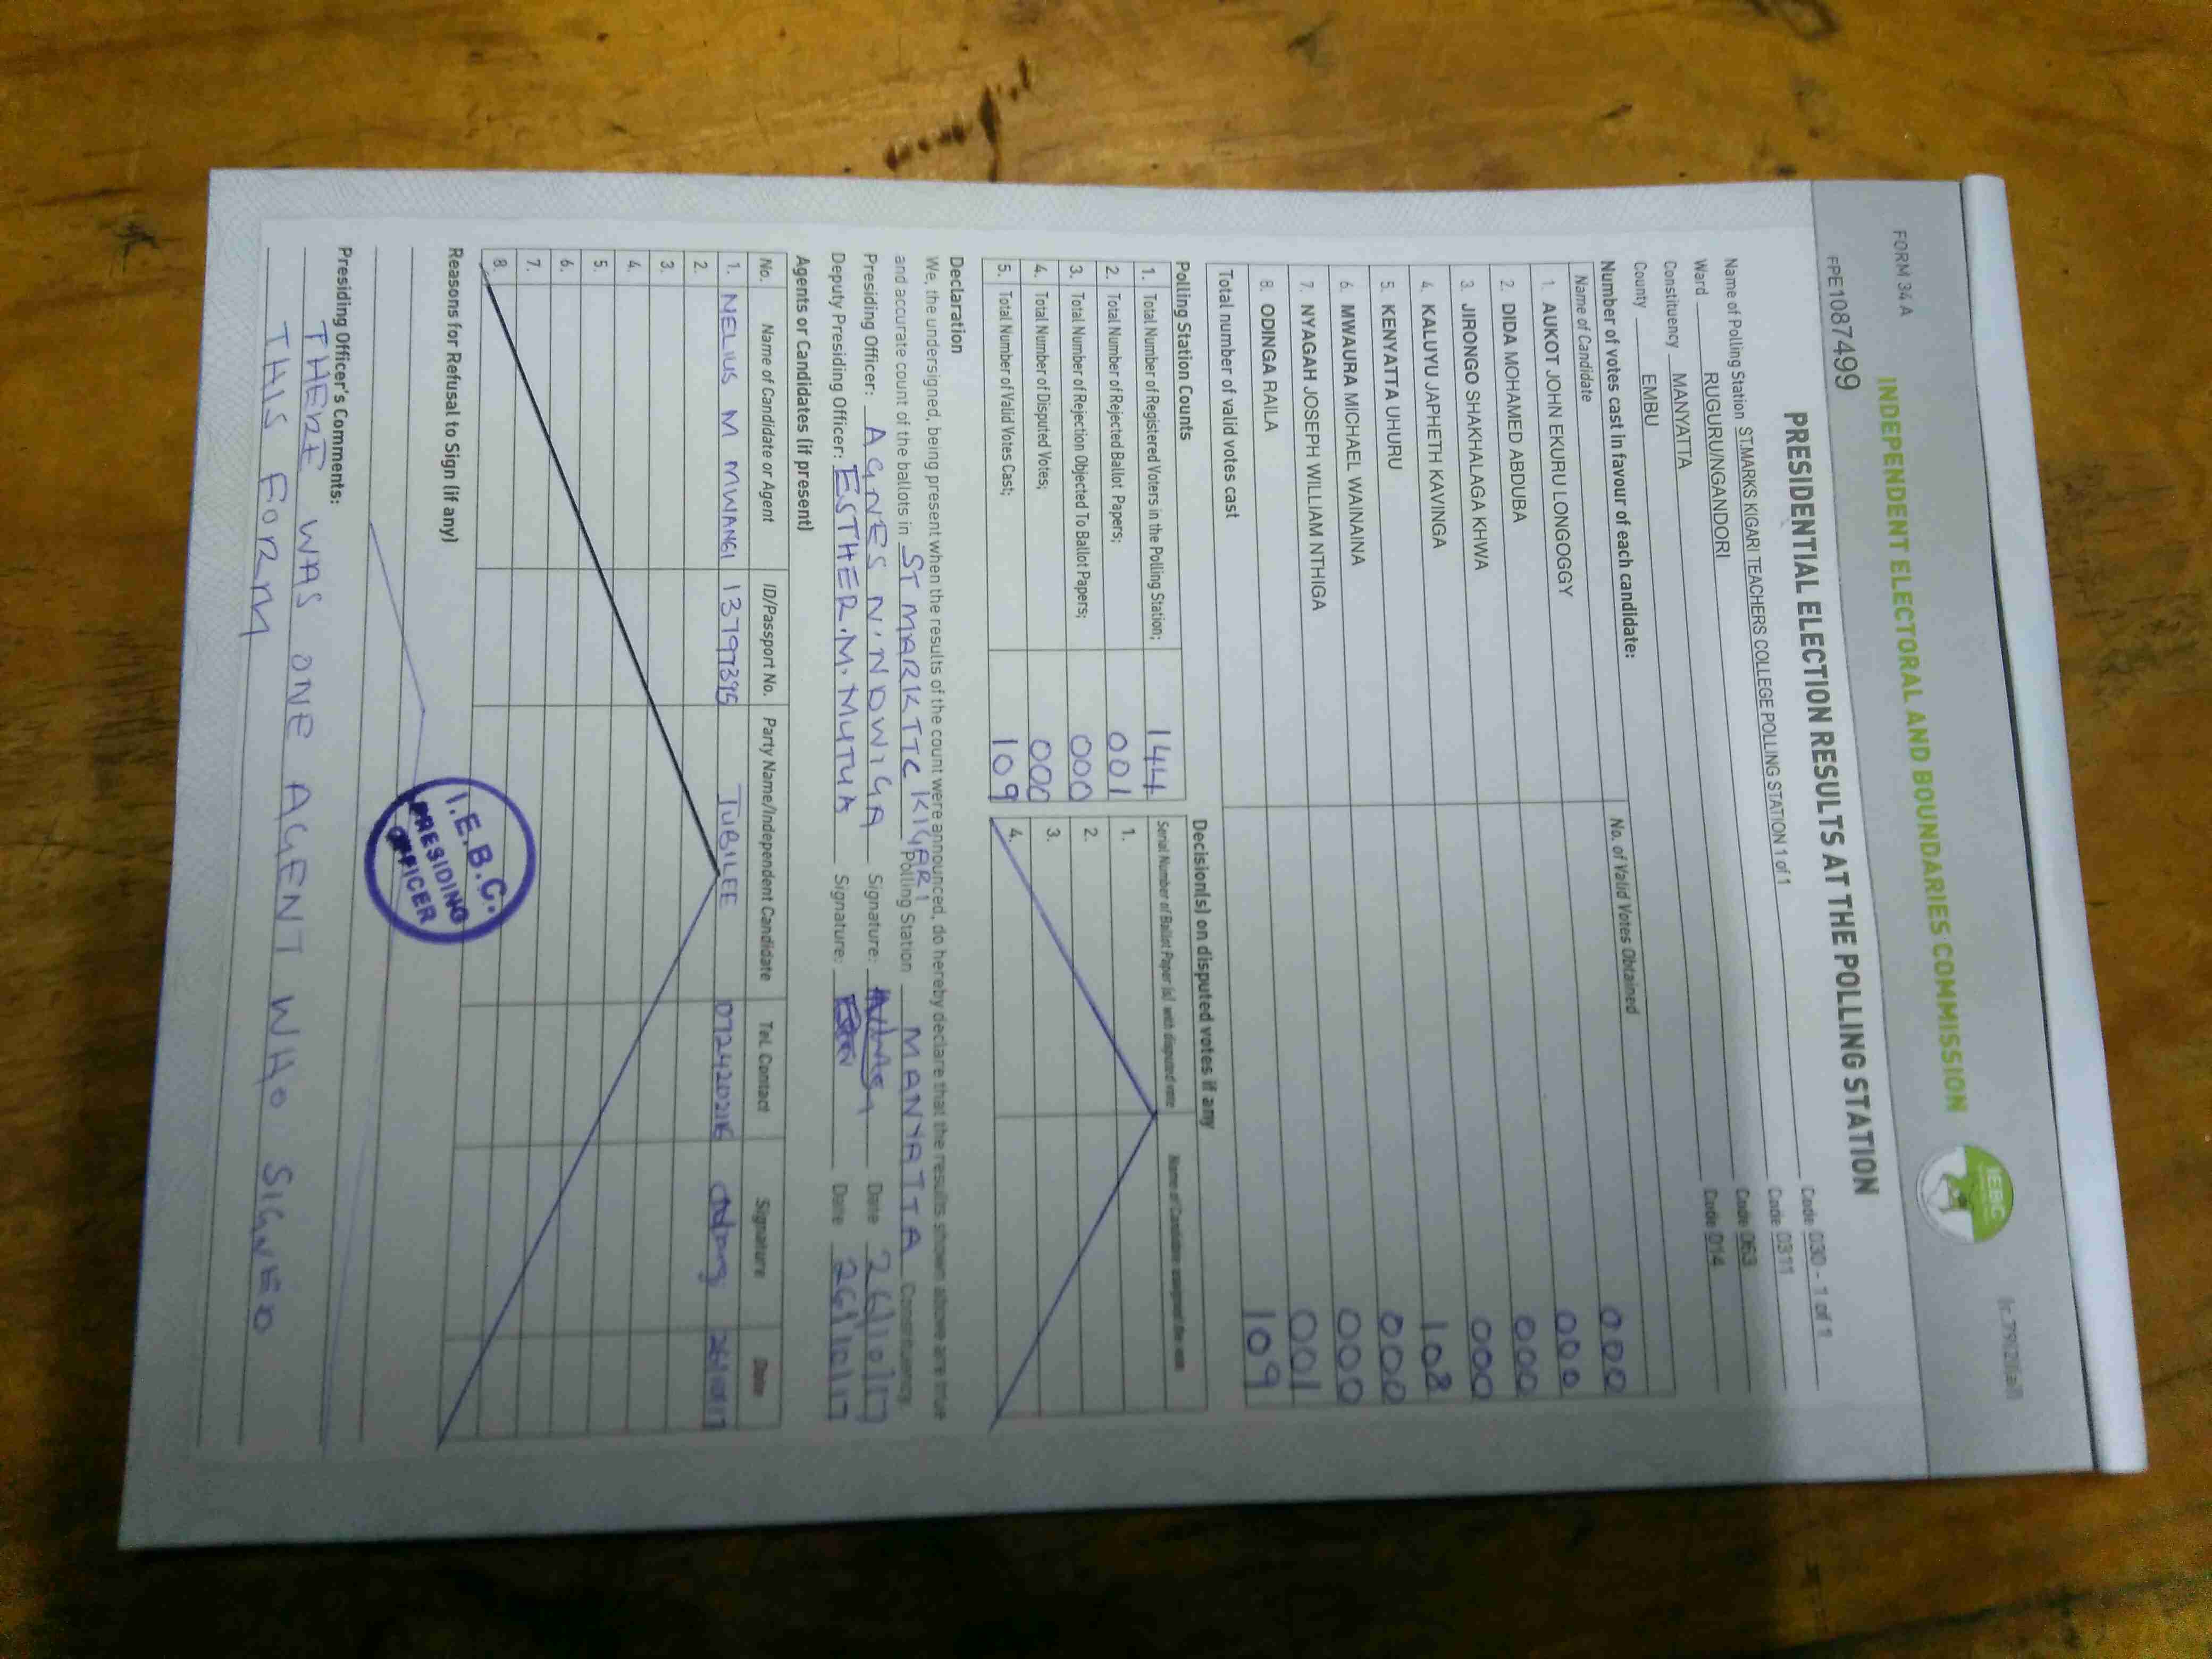 lr.792(Ia)
FORM 34A
INDEPENDENT ELECTORAL AND BOUNDARIES COMMISSION
IEBC
FPE1087499
PRESIDENTIAL ELECTION RESULTS AT THE POLLING STATION
Name of Polling Station ST.MARKS KIGARI TEACHERS COLLEGE POLLING STATION 1 of 1 Code 030 - 1 of 1
Ward RUGURU/NGANDORI Code 0311
Constituency MANYATTA Code 063
County EMBU Code 014
Number of votes cast in favour of each candidate:
Name of Candidate No. of Valid Votes Obtained
1. AUKOT JOHN EKURU LONGOGGY 000
2. DIDA MOHAMED ABDUBA 000
3. JIRONGO SHAKHALAGA KHWA 000
4. KALUYU JAPHETH KAVINGA 000
5. KENYATTA UHURU 108
6. MWAURA MICHAEL WAINAINA 000
7. NYAGAH JOSEPH WILLIAM NTHIGA 000
8. ODINGA RAILA 001
Total number of valid votes cast 109
Polling Station Counts
1. Total Number of Registered Voters in the Polling Station; 144
2. Total Number of Rejected Ballot Papers; 001
3. Total Number of Rejection Objected To Ballot Papers; 000
4. Total Number of Disputed Votes; 000
5. Total Number of Valid Votes Cast; 109
Decision(s) on disputed votes if any
Serial Number of Ballot Paper (s) with disputed vote Name of Candidate assigned the vote
1.
2.
3.
4.
Declaration
We, the undersigned, being present when the results of the count were announced, do hereby declare that the results shown above are true
and accurate count of the ballots in ST MARK TTC KIGARI Polling Station MANYATTA Constituency
Presiding Officer: AGNES N. NDWIGA Signature: Date 26/10/17
Deputy Presiding Officer: ESTHER.M.MUTUA Signature: Date 26/10/17
Agents or Candidates (if present)
No. Name of Candidate or Agent ID/Passport No. Party Name/Independent Candidate Tel. Contact Signature Date
1. NELIUS M MWANGI 13797395 JUBILEE 0724202116 26/10/17
2.
3.
4.
5.
6.
7.
8.
Reasons for Refusal to Sign (if any)
I.E.B.C.
PRESIDING
OFFICER
Presiding Officer's Comments:
THERE WAS ONE AGENT WHO SIGNED
THIS FORM